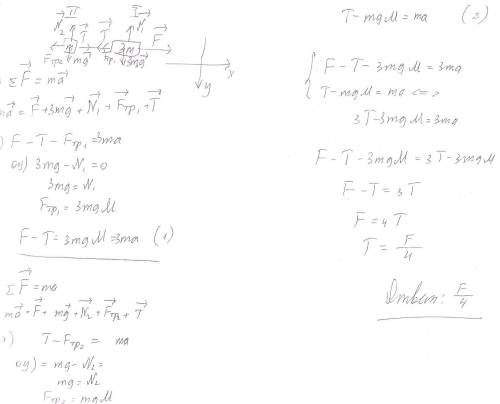 II I
N₂ T T N₁ F
m 3m
Fтр₂ mg Fтр₁ 3mg
x
y
ΣF⃗ = ma⃗
ma⃗ = F⃗ + 3mg⃗ + N⃗₁ + F⃗тр₁ + T⃗
) F - T - Fтр₁ = 3ma
oy) 3mg - N₁ = 0
3mg = N₁
Fтр₁ = 3mgM
F - T = 3mgM = 3ma (1)
ΣF⃗ = ma
ma⃗ = F⃗ + mg⃗ + N⃗₂ + F⃗тр₂ + T⃗
x) T - Fтр₂ = ma
oy) = mg - N₂ =
mg = N₂
Fтр₂ = mgM
T - mgM = ma (2)
F - T - 3mgM = 3ma
T - mgM = ma <=>
3T - 3mgM = 3ma
F - T - 3mgM = 3T - 3mgM
F - T = 3T
F = 4T
T = F/4
Ответ: F/4